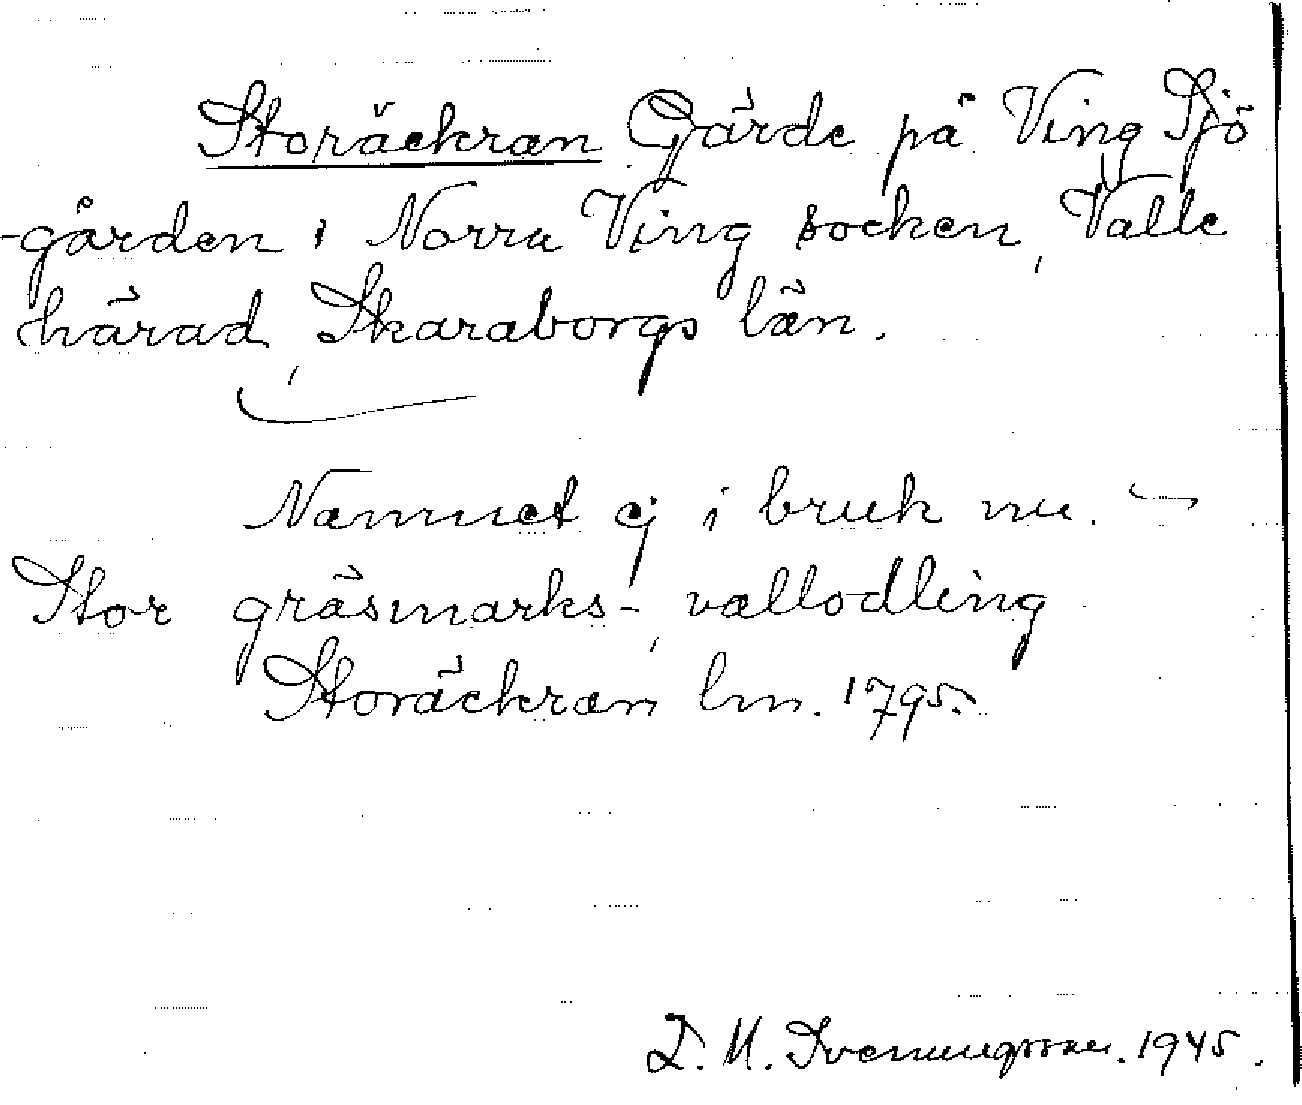 Storäckran Gärde på Ving Sjö
-gården i Norra Ving socken, Valle
härad, Skaraborgs län.
Namnet ej i bruk nu. -
Stor gräsmarks-, vallodling
Storäckran lm. 1795.
D. M. Svenungsson. 1945.